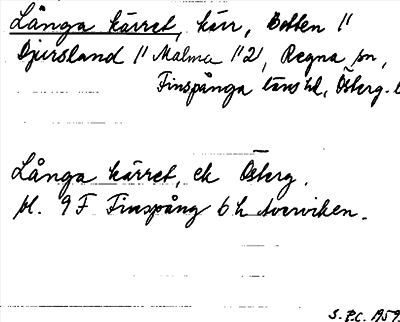 Långa kärret, kärr, Botten 1/1
Djursland 1/1 Malma 1/2, Regna sn,
Finspånga läns hd, Österg. l
Långa kärret, ek Österg.
bl. 9 F Finspång 6 h Averviken.
S.P.C. 1959.